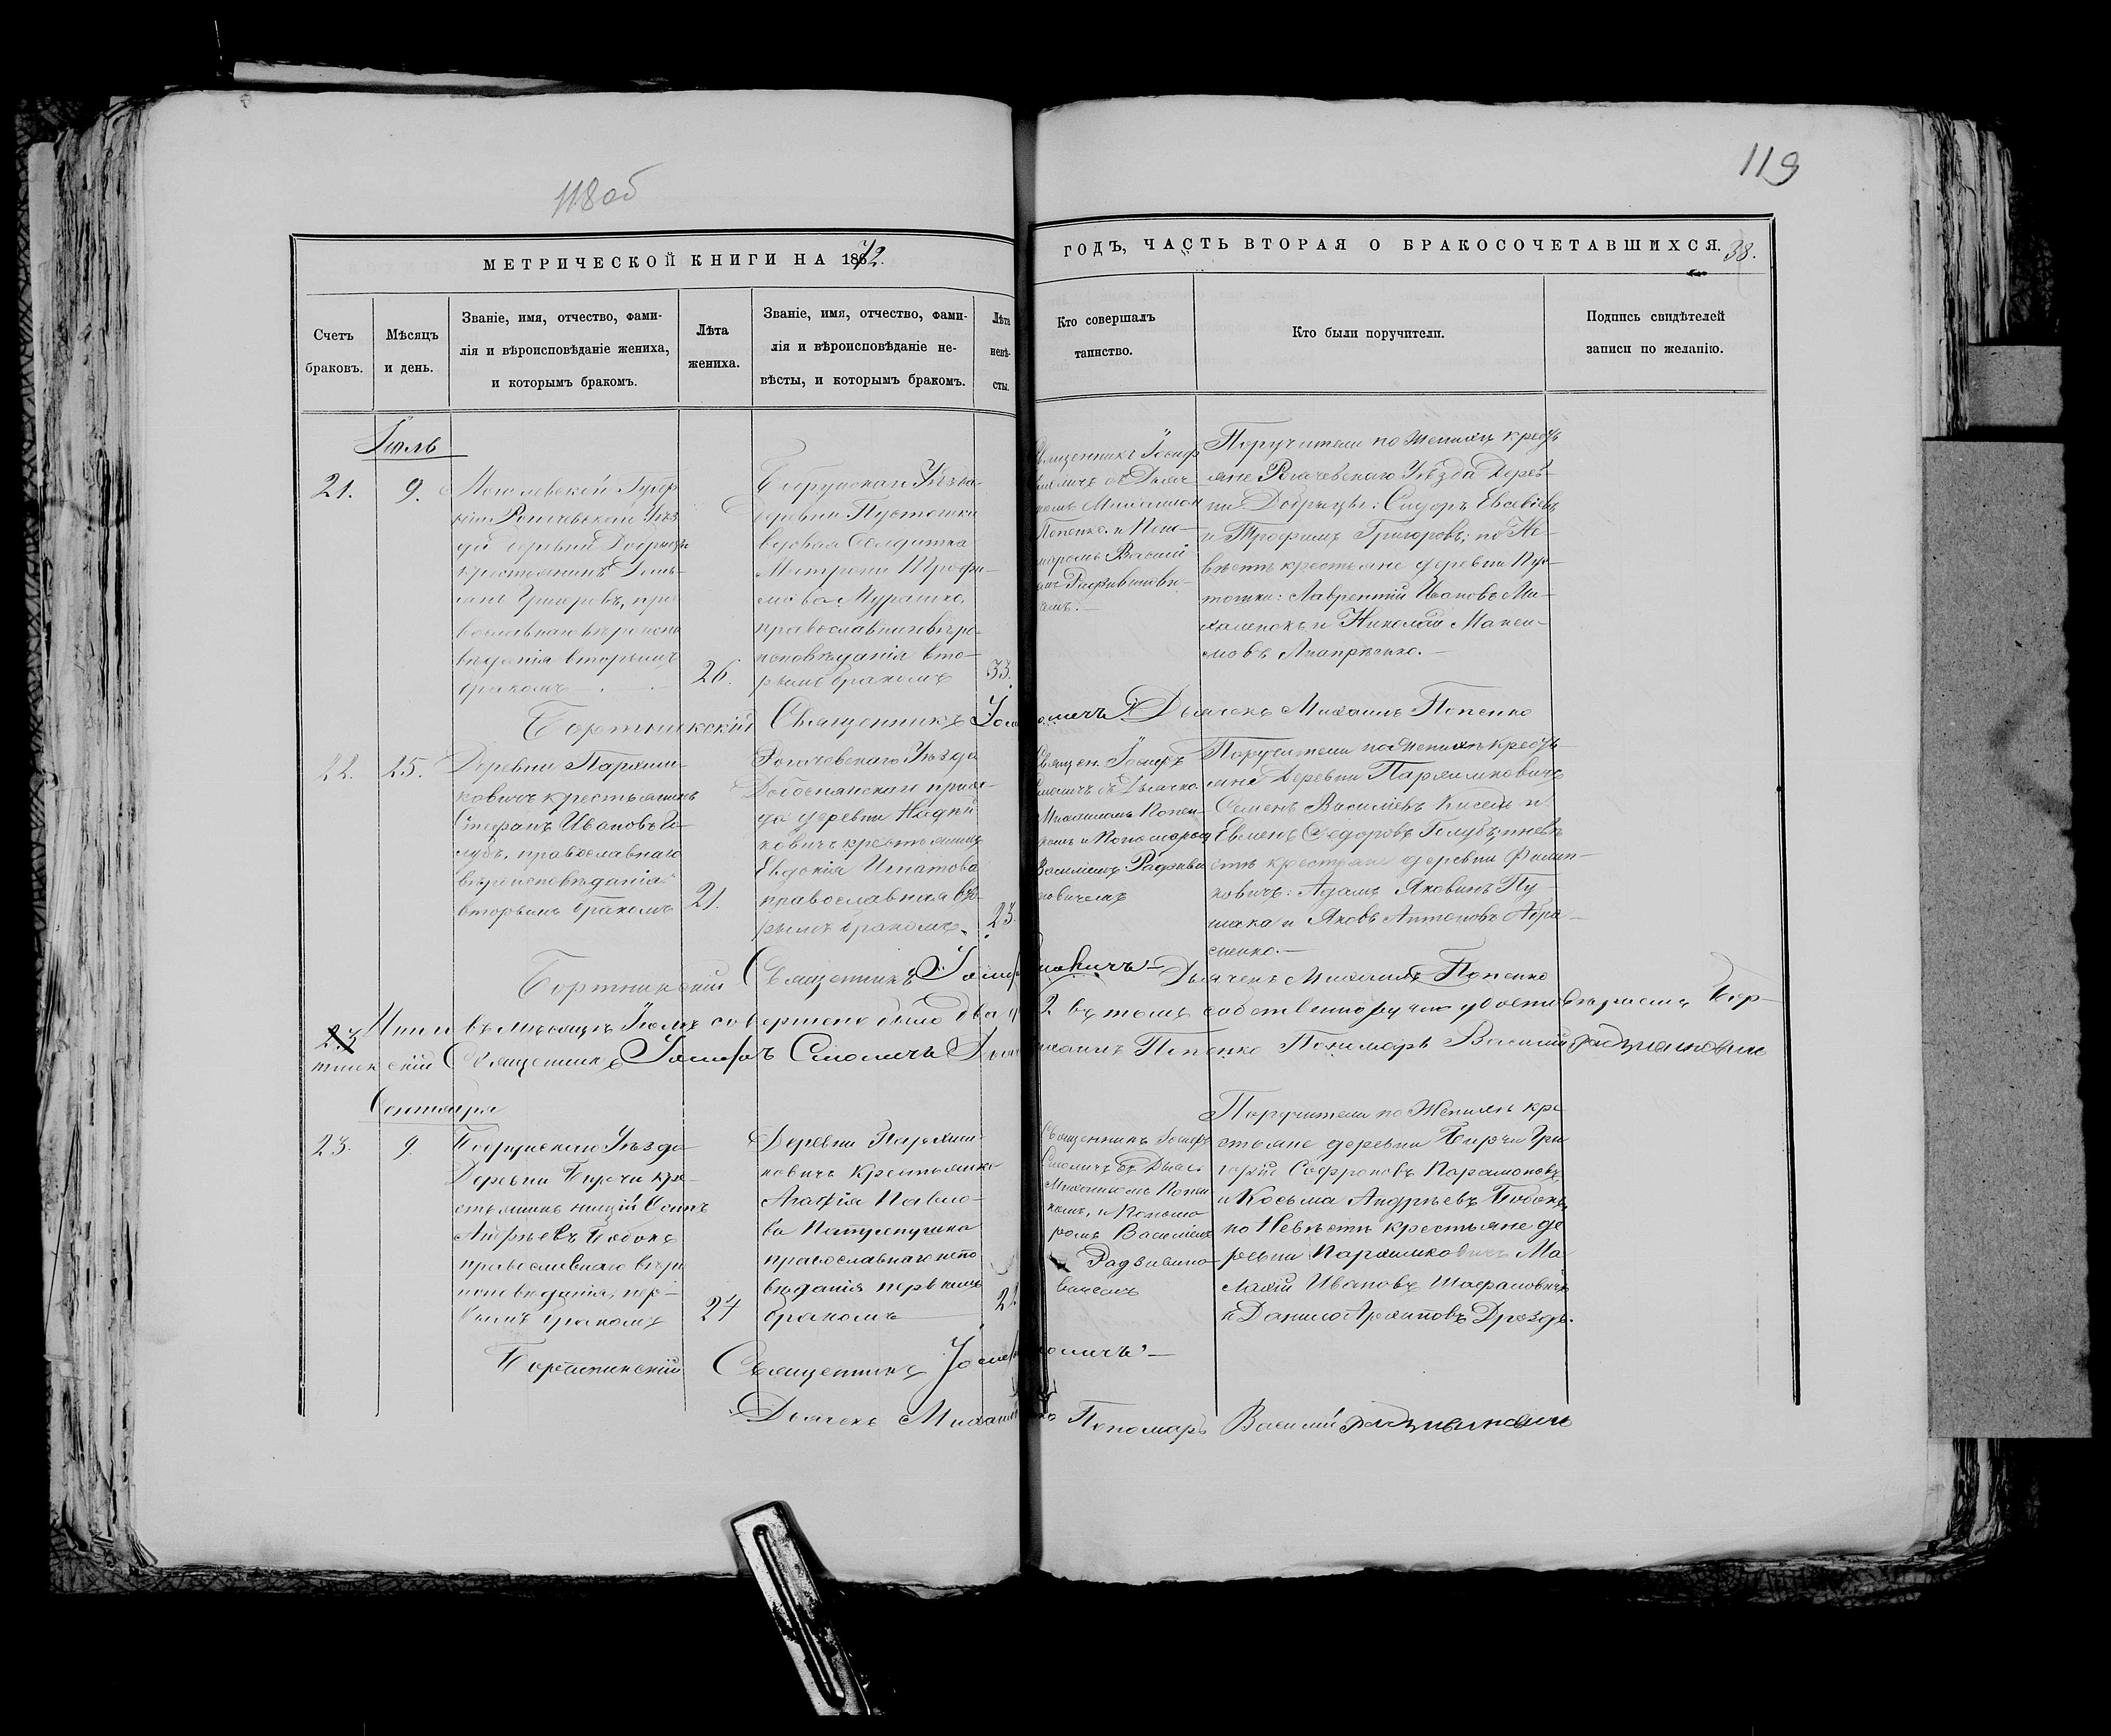 118 об
119
МЕТРИЧЕСКОЙ КНИГИ НА 1872.
ГОДЪ, ЧАСТЬ ВТОРАЯ О БРАКОСОЧЕТАВШИХСЯ.
38.
Счетъ
браковъ.
Мѣсяцъ
и день.
Званіе, имя, отчество, фами-
лія и вѣроисповѣданіе жениха,
и которымъ бракомъ.
Лѣта
жениха.
Званіе, имя, отчество, фами-
лія и вѣроисповѣданіе не-
вѣсты, и которымъ бракомъ.
Лѣта
невѣ-
сты.
Кто совершалъ
таинство.
Кто были поручители.
Подпись свидѣтелей
записи по желанію.
Іюль
21.
9.
Могилевской Губер
Рогачевскаго Уѣз
да деревни Добрицы
крестьянинъ Демь-
янъ Григоровъ, пра
вославнаго вѣроиспо
вѣданія вторымъ
бракомъ
26.
Бобруйскаго Уѣзда
деревни Пустошки
вдовая Солдатка
Матрона Трофи-
мова Мурашко,
православнаго вѣро-
исповѣданія вто-
рымъ бракомъ
33.
Священникъ Іосиф
Смоличъ съ Дьяч
комъ Михаиломъ
Попенко и Поно-
маремъ Василі
емъ
Поручители по Женихѣ кресть
яне Рогачевскаго Уѣзда Дерев-
ни Добрицы: Сидоръ Евсѣевъ
и Трофимъ Григоровъ; по Не-
вѣстѣ крестьяне деревни Пус-
тошки: Лаврентій Ивановъ Ми-
халенокъ и Николай Макси-
мовъ
Бортникскій Священникъ Іоси
оличъ Дьячекъ Михаилъ Попенко
22.
25.
Деревни Пархим-
ковичъ крестьянинъ
Стефанъ Ивановъ Го-
лубъ, православнаго
вѣроисповѣданія
вторымъ бракомъ
21.
Рогачевскаго Уѣзда
Добоснянскаго прихо-
да деревни
ковичъ крестьянка
Евдокія Игнатова
православная вто-
рымъ бракомъ.
23.
Священ. Іосифъ
Смоличъ съ Дьячко
Михаиломъ Попен-
комъ и Пономаремъ
Василіемъ Радзиви
новичемъ
Поручители по Женихѣ кресть-
яне Деревни Пархимковичъ
Семенъ Василіевъ Кисель и
Евменъ Федоровъ Голубъ; по невѣ
стѣ крестьяне деревни Филип-
ковичъ: Адамъ Яковинъ Пу-
шака и Яковъ Антоновъ Абра-
менко.
Бортникскій Священникъ Іосиф
Дьячекъ Михаилъ Попенко
23
Итого въ мѣсяцѣ Іюлѣ совершено было два
2 въ томъ собственноручно удостовѣряемъ Бор-
тникскій Священникъ Іосифъ Смоличъ Дья
ихаилъ Попенко Пономарь Василий
Сентября
23.
9.
Бобруйскаго Уѣзда
Деревни Бирчи кре-
стьянинъ Осипъ
Андреевъ Бобокъ
православнаго вѣро
исповѣданія, пер-
вымъ бракомъ
24
Деревни Пархим-
ковичъ Крестьянка
Агафія Павло-
ва
православнаго испо
вѣданія первымъ
бракомъ
Священникъ Іосифъ
Смоличъ съ Дьяч.
Михаиломъ Попен
комъ, и Понома
ремъ Василіемъ
Радзивино
вичемъ
Поручители по Женихѣ кре
стьяне деревни Бирчи Гри
горій Софроновъ Парамоновъ
и Косьма Андреевъ Бобокъ,
по Невѣстѣ крестьяне де
ревни Пархимковичъ Ма
лахій Ивановъ Шафаловичъ
и Данило Архиповъ Дроздъ.
Бортникскій Священникъ Іосиф
оличъ
Дьячекъ Михаил
ко Пономарь Василий